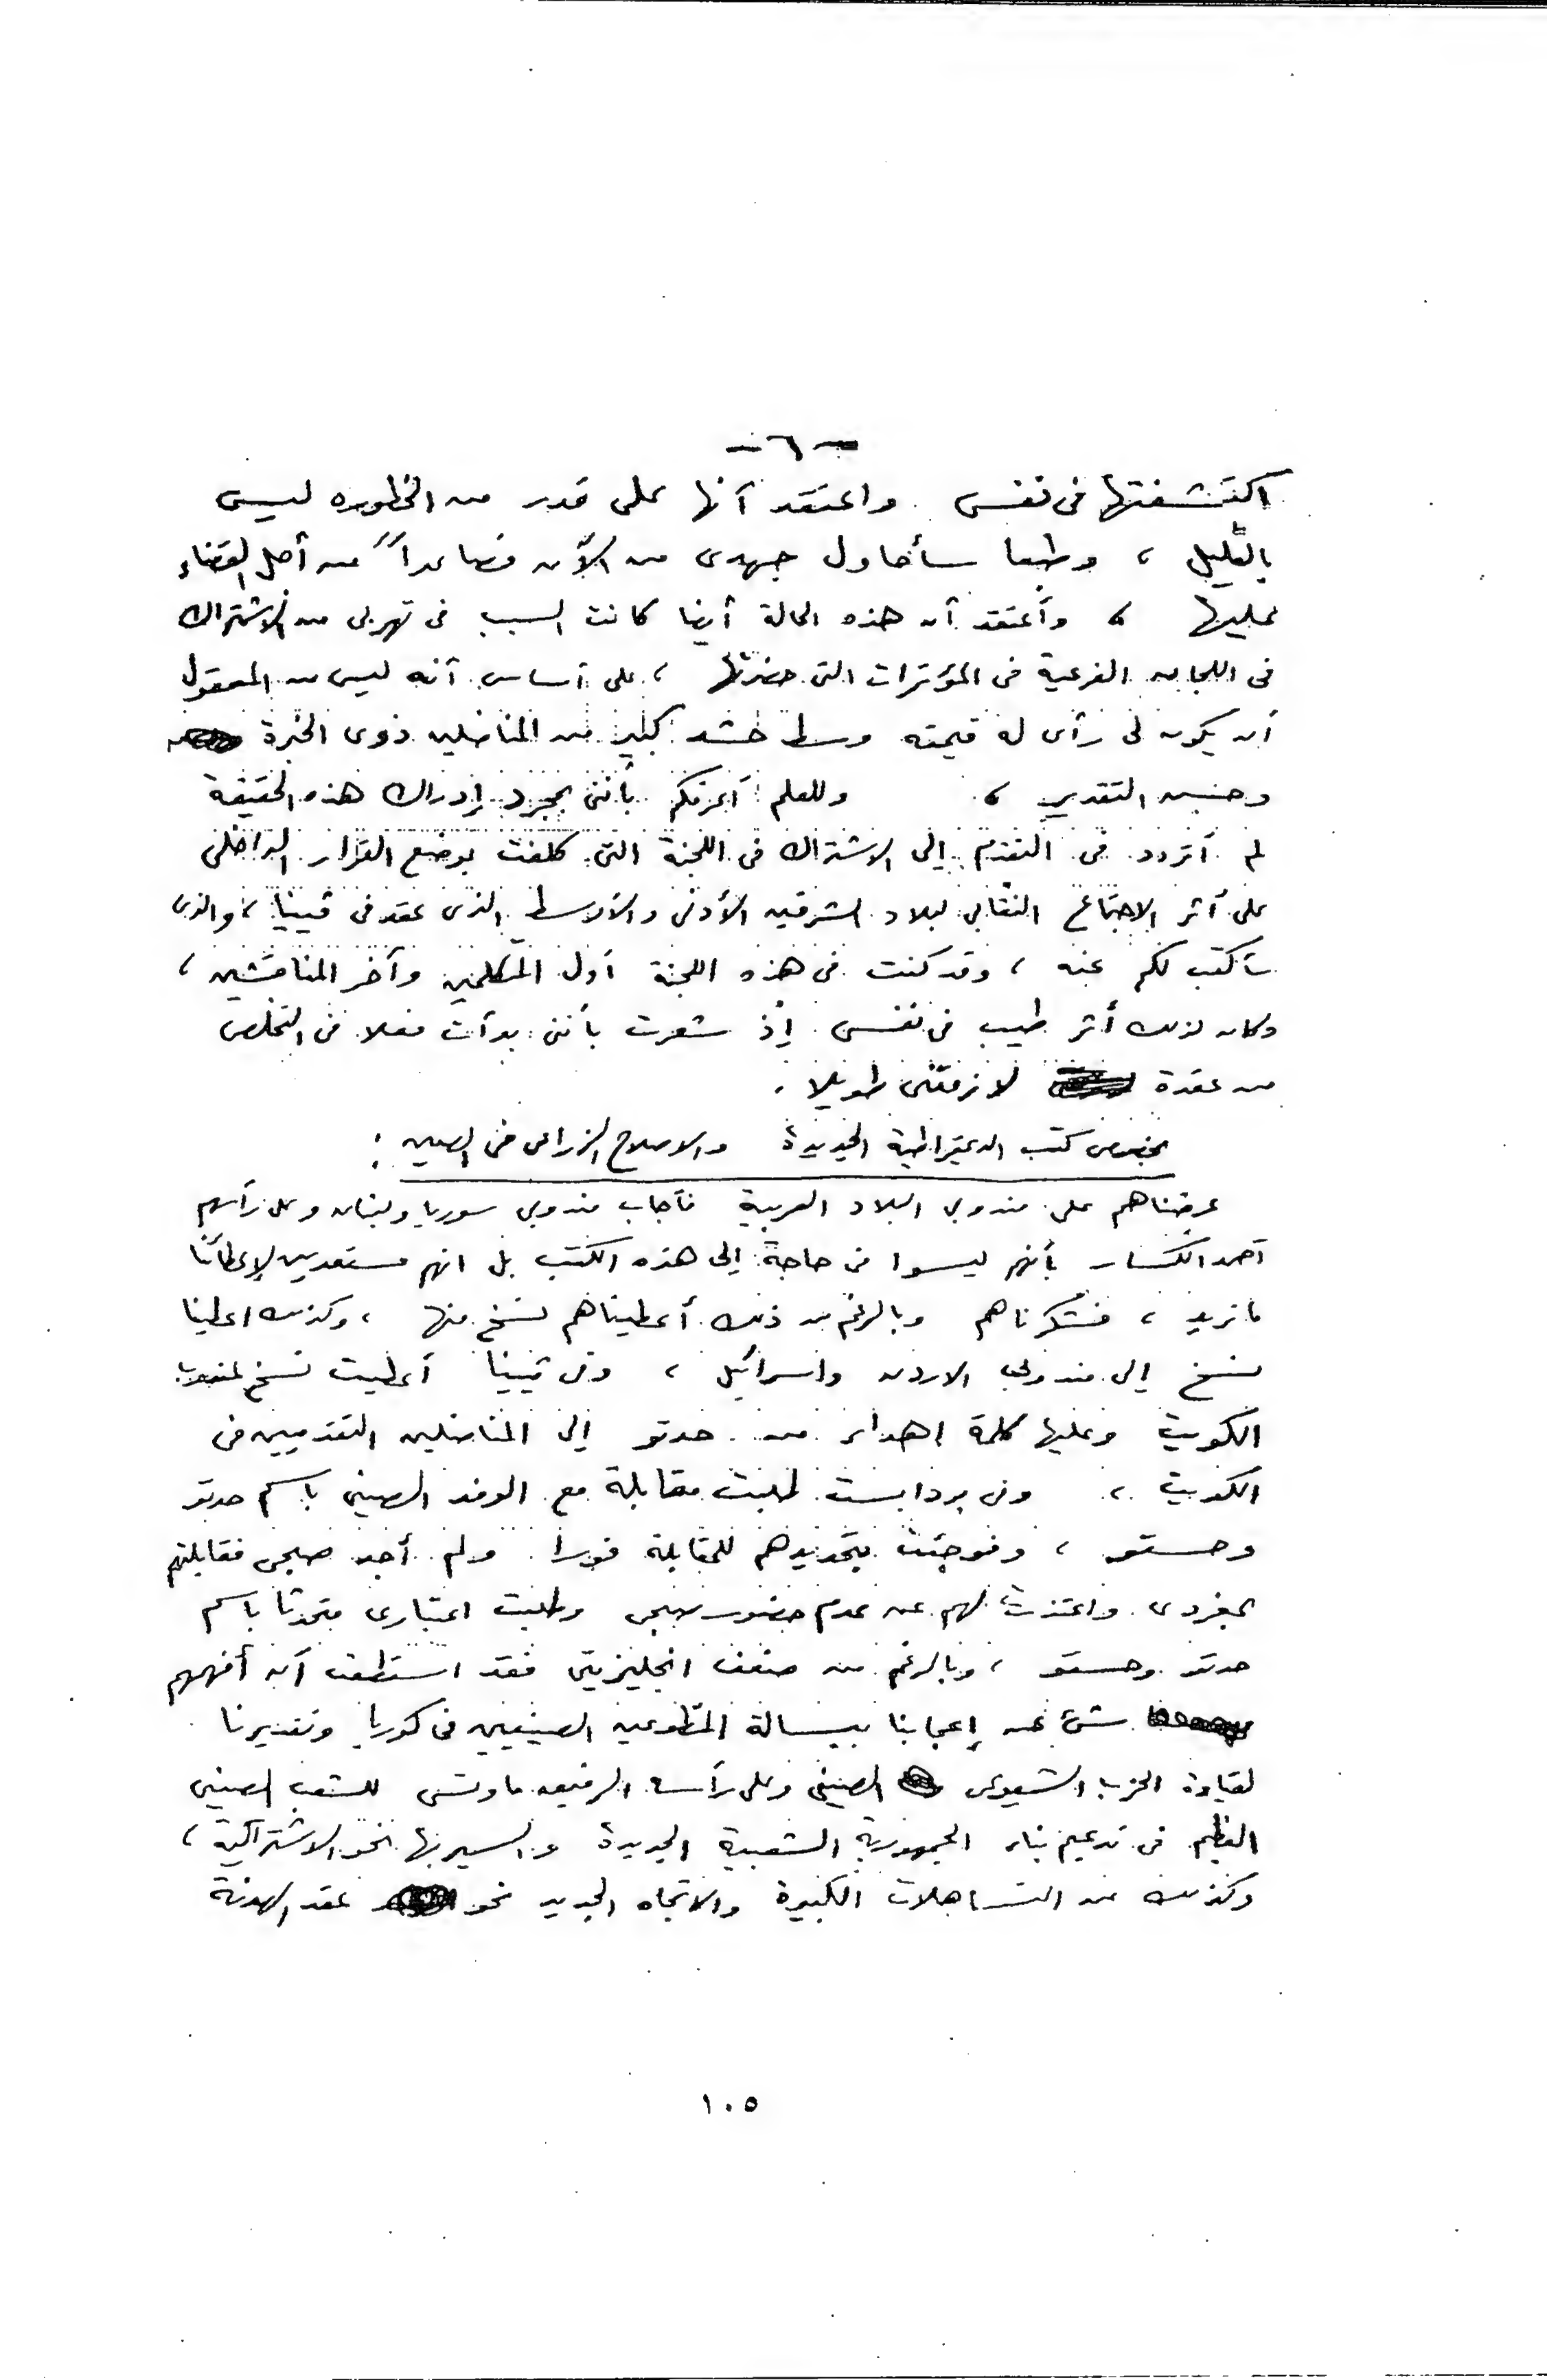 -٦-
اكتشفتها فى نفسى واعتقد أنها على قدر من الخطوره ليس
بالقليل ، وطبعا سأحاول جهدى من الآن فصاعداً من أجل القضاء
عليها ، وأعتقد أن هذه الحالة أيضا كانت السبب فى تهربى من الاشتراك
فى اللجان الفرعية فى المؤتمرات التى حضرتها ، على أساس أنه ليس من المعقول
أن يكون لى رأى له قيمته وسط حشد كبير من المناضلين ذوى الخبرة
وحسن التقدير ، وللعلم أعرفكم بأننى بمجرد إدراك هذه الحقيقة
لم أتردد فى التقدم إلى الاشتراك فى اللجنة التى كلفت بوضع القرار الداخلى
على أثر الاجتماع النقابى لبلاد الشرقين الأدنى والأوسط الذى عقد فى ڤيينا ، والذى
سأكتب لكم عنه ، وقد كنت فى هذه اللجنة أول المتكلمين وآخر المناقشين ،
وكان لذلك أثر طيب فى نفسى إذ شعرت بأننى بدأت فعلا فى التخلص
من عقدة لازمتنى طويلا .
بخصوص كتب الديمقراطية الجديدة والاصلاح الزراعى فى الصين :
عرضناهم على مندوبى البلاد العربية فأجاب مندوبى سوريا ولبنان وعلى رأسهم
أحمد الكسار بأنهم ليسوا فى حاجة إلى هذه الكتب بل انهم مستعدين لإعطائنا
ما نريد ، فشكرناهم وبالرغم من ذلك أعطيناهم نسخ منها ، وكذلك اعطينا
نسخ إلى مندوبى الاردن واسرائيل ، وفى ڤيينا أعطيت نسخ لمندوب
الكويت وعليها كلمة إهداء من حدتو إلى المناضلين التقدميين فى
الكويت ، وفى بودابست طلبت مقابلة مع الوفد الصينى باسم حدتو
وحستو ، وفوجئت بتحديدهم للمقابلة فورا ولم أجد صبحى فقابلتهم
بمفردى واعتذرت لهم عن عدم حضور صبحى وطلبت اعتبارى متحدثا باسم
حدتو وحستو ، وبالرغم من ضعف انجليزيتى فقد استطعت أن أفهمهم
شئ عن إعجابنا ببسالة المتطوعين الصينيين فى كوريا وتقديرنا
لقيادة الحزب الشيوعى الصينى وعلى رأسه الرفيق ماوتسى للشعب الصينى
العظيم فى تدعيم بناء الجمهورية الشعبية الجديدة والسير بها نحو الاشتراكية ،
وكذلك عن التساهلات الكبيرة والاتجاه الجديد نحو عقد الهدنة
١٠٥